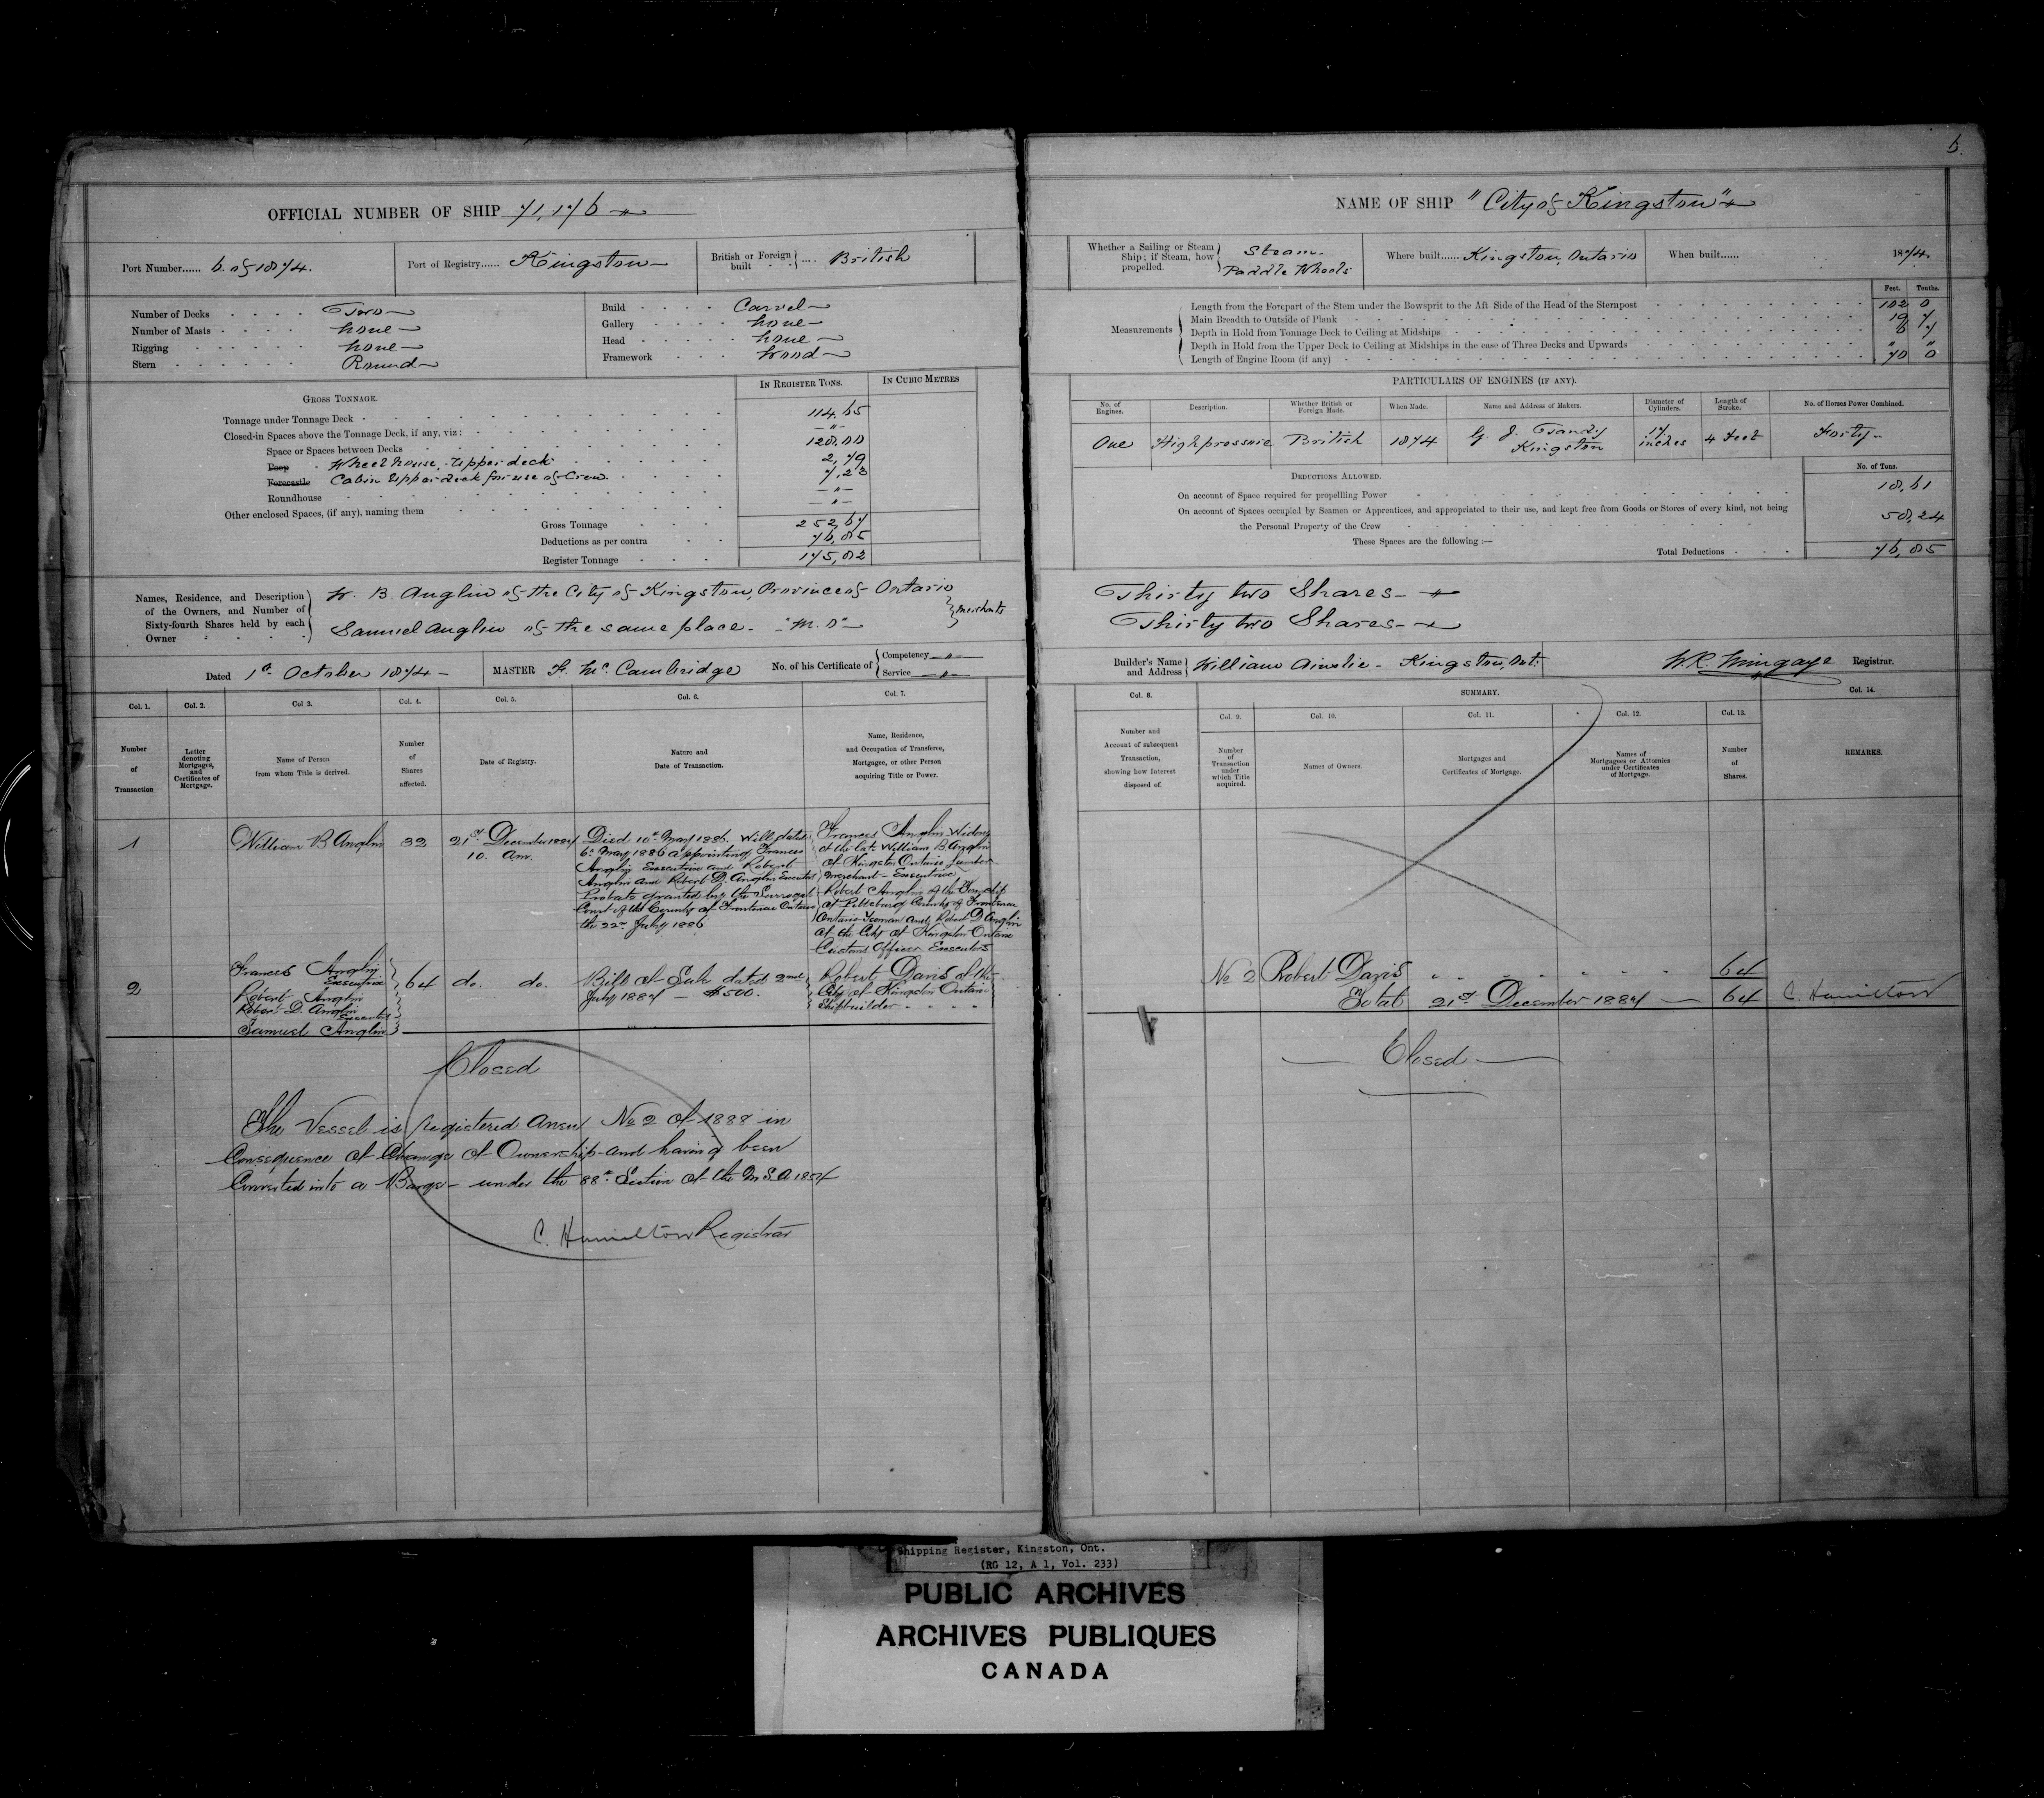 6.
OFFICIAL NUMBER OF SHIP 71,176
Port Number...... 6. of 1874.
Port of Registry...... Kingston
British or Foreign built .... British
Number of Decks Two
Number of Masts None
Rigging None
Stern Round
Build Carvel
Gallery None
Head None
Framework Wood
IN REGISTER TONS.
IN CUBIC METRES
GROSS TONNAGE.
Tonnage under Tonnage Deck 114.65
Closed-in Spaces above the Tonnage Deck, if any, viz: — " —
Space or Spaces between Decks 128.00
Poop Wheel house, Upper deck 2,79
Forecastle Cabin Upper deck for use of Crew 7,23
Roundhouse — " —
Other enclosed Spaces, (if any), naming them — " —
Gross Tonnage 252,67
Deductions as per contra 76,85
Register Tonnage 175,82
Names, Residence, and Description of the Owners, and Number of Sixty-fourth Shares held by each Owner
W. B. Anglin of the City of Kingston, Province of Ontario
Samuel Anglin of the same place
Merchants
Dated 1st October 1874
MASTER F. McCambridge
No. of his Certificate of Competency — " —
Service — " —
Col. 1.
Col. 2.
Col 3.
Col. 4.
Col. 5.
Col. 6.
Col. 7.
Number of Transaction
Letter denoting Mortgages, and Certificates of Mortgage.
Name of Person from whom Title is derived.
Number of Shares affected.
Date of Registry.
Nature and Date of Transaction.
Name, Residence, and Occupation of Transferee, Mortgage, or other Person acquiring Title or Power.
1
William B Anglin
32
21st December 1887
10. Am.
Died 10th May 1886. Will dated
6th May 1886 appointing Frances
Anglin Executrix and Robert
Anglin and Robert D. Anglin Executors
Probate granted by the Surrogate
Court of the County of Frontenac Ontario
the 22nd July 1886
Frances Anglin Widow
of the late William B Anglin
of Kingston Ontario Lumber
Merchant - Executrix
Robert Anglin of the Township
of Pittsburg County of Frontenac
Ontario Yeoman and Robert D Anglin
of the City of Kingston Ontario
Customs Officer Executors
2
Frances Anglin
Executrix
Robert Anglin
Robert D. Anglin
Executors
Samuel Anglin
64
do. do.
Bill of Sale dated 2nd
July 1887 — $500.
Robert Davis of the
City of Kingston Ontario
Shipbuilder
Closed
The Vessel is Registered Anew No 2 of 1888 in
Consequence of Change of Ownership and having been
Converted into a Barge - under the 88th Section of the M S A 1854
C. Hamilton Registrar
NAME OF SHIP "City of Kingston"
Whether a Sailing or Steam Ship; if Steam, how propelled. Steam Paddle Wheels
Where built...... Kingston, Ontario
When built...... 1874.
Feet. Tenths.
Measurements
Length from the Forepart of the Stem under the Bowsprit to the Aft Side of the Head of the Sternpost 102 0
Main Breadth to Outside of Plank 19 7
Depth in Hold from Tonnage Deck to Ceiling at Midships 6 7
Depth in Hold from the Upper Deck to Ceiling at Midships in the case of Three Decks and Upwards " "
Length of Engine Room (if any) 70 0
PARTICULARS OF ENGINES (IF ANY).
No. of Engines.
Description.
Whether British or Foreign Made.
When Made.
Name and Address of Makers.
Diameter of Cylinders.
Length of Stroke.
No. of Horses Power Combined.
One
High pressure
British
1874
Kingston
17 inches
4 Feet
Forty
DEDUCTIONS ALLOWED.
No. of Tons.
On account of Space required for propellling Power 18,61
On account of Spaces occupied by Seamen or Apprentices, and appropriated to their use, and kept free from Goods or Stores of every kind, not being
the Personal Property of the Crew 58,24
These Spaces are the following :—
Total Deductions 76,85
Thirty two Shares
Thirty two Shares
Builder's Name and Address William Ainslie - Kingston, Ont.
W.R. Mingaye Registrar.
Col. 8.
SUMMARY.
Col. 14.
Col. 9.
Col. 10.
Col. 11.
Col. 12.
Col. 13.
Number and Account of subsequent Transaction, showing how Interest disposed of.
Number of Transaction under which Title acquired.
Names of Owners.
Mortgages and Certificates of Mortgage.
Names of Mortgagees or Attornies under Certificates of Mortgage.
Number of Shares.
REMARKS.
No 2 Robert Davis 64
Total 21st December 1887 — 64 C. Hamilton
Closed
Shipping Register, Kingston, Ont.
(RG 12, A 1, Vol. 233)
PUBLIC ARCHIVES
ARCHIVES PUBLIQUES
CANADA